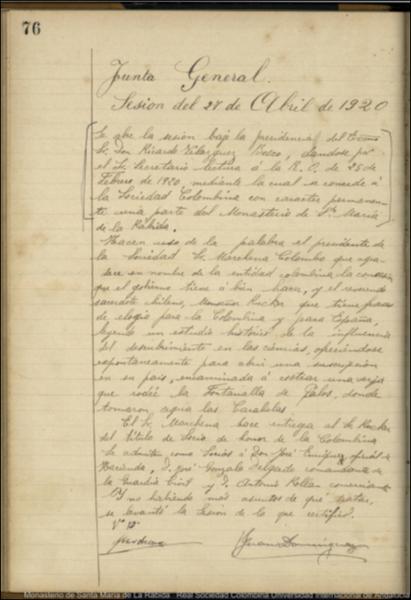 76
Junta General.
Sesion del 27 de Abril de 1920
Se abre la sesión bajo la presidencia del Excmo
Sr. Don Ricardo Velazquez Bosco, dandose por
el Sr. Secretario lectura á la R. O. de 26 de
Febrero de 1920, mediante la cual se concede á
la Sociedad Colombina con caracter permanen-
te una parte del Monasterio de Sta María
de la Rábida.
Hacen uso de la palabra el presidente de
la Sociedad Sr. Marchena Colombo que agra-
dece en nombre de la entidad colombina la
que el gobierno tiene á bien hacer, y el reverendo
sacerdote chileno, Monseñor Rucker que tiene frases
de elogio para la Colombina y para España,
leyendo un estudio histórico de la influencia
del descubrimiento en las ciencias, ofreciéndose
espontaneamente para abrir una suscripción
en su país, encaminada á costear una verja
que rodee la Fontanilla de Palos, donde
tomaron agua las Carabelas.
El Sr. Marchena hace entrega al Sr. Rucker
del título de Socio de honor de la Colombina
Se admiten como Socios á Don José oficial de
Hacienda, D. José Gonzalo Delgado comandante de
la Guardia Civil y D. Antonio Rollan comerciante
Y no habiendo mas asuntos de qué tratar,
se levantó la Sesion de lo que certifico.
Vº Bº
Marchena Juan Dominguez
Monasterio de Santa María de La Rábida Real Sociedad Colombina Universidad Internacional de Andalucía